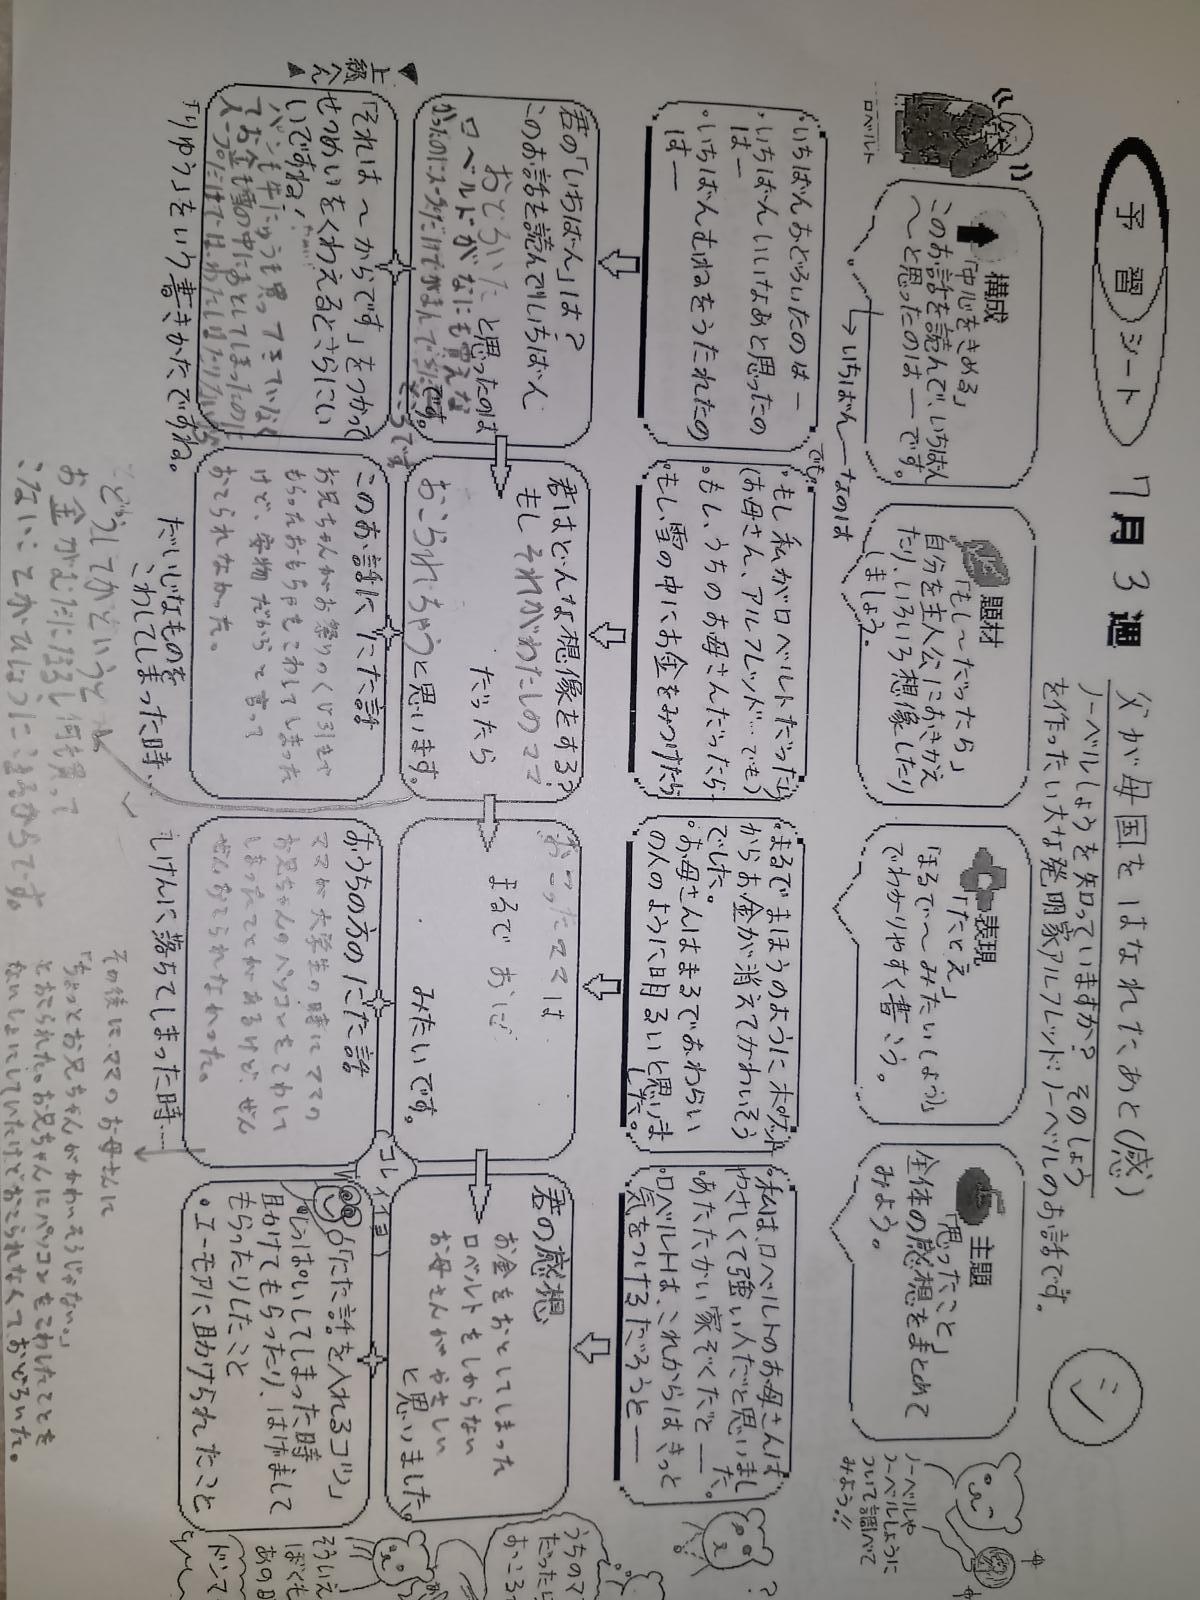 予習シート
7月3週
父が母国をはなれたあと(感)
ノーベルしょうを知っていますか?そのしょう
を作ったい大な発明家アルフレッド・ノーベルのお話です。
シ
ロベルト
構成
「中心をきめる」
このお話を読んで、いちばん
〜と思ったのは―です。
→いちばん―なのは
題材
「もし〜だったら」
自分を主人公におきかえ
たり、いろいろ想像したり
しましょう。
表現
「たとえ」
「まるで〜みたい(よう)」
でわかりやすく書こう。
主題
「思ったこと」
全体の感想をまとめて
みよう。
ノーベルや
ノーベルしょうに
ついて調べて
みよう!!
・いちばんおどろいたのは―
・いちばんいいなあと思ったの
は―
・いちばんむねをうたれたの
は―
・もし私がロベルトだったら
(お母さん、アルフレッド…でも)
でも。
・もし、うちのお母さんだったら
・もし雪の中にお金をみつけたら
・まるでまほうのようにポケット
からお金が消えてかわいそう
でした。
・お母さんはまるでおわらい
の人のように明るいと思いま
した。
・私は、ロベルトのお母さんは
やさしくて強い人だと思いまし
た。
・あたたかい家ぞくだと―
・ロベルトは、これからはきっと
気をつけるだろうと―
?
君の「いちばん」は?
このお話を読んでいちばん
おどろいた と思ったのは
ロベルトがなにも買えな
かったのにスープだけでがまんでき
ところです。
君はどんな想像をする?
もし それがわたしのママ
だったら
おこられちゃうと思います。
おこったママは
まるで おに
みたいです。
君の感想
お金をおとしてしまった
ロベルトをしからない
お母さんがやさしい
と思いました。
▼上級へん▲
「それは〜からです」をつかって
せつめいをくわえるとさらにい
いですね!
パンも牛にゅうも買
てお金も雪の中におとしてしまったのに
「りゆう」をいう書きかたですね。
このお話ににた話
お兄ちゃんがお祭りのくじ引きで
もらったおもちゃをこわしてしまった
けど、安物だからと言って
おこられなかった。
だいじなものを
こわしてしまった時…
おうちの方のにた話
ママが大学生の時にママの
お兄ちゃんのパソコンをこわして
しまったことがあるけど、ぜん
ぜんおこられなかった。
しけんに落ちてしまった時…
コレイイヨ
「にた話を入れるコツ」
・しっぱいしてしまった時
助けてもらったり、はげまして
もらったりしたこと
・ユーモアに助けられたこと
どうしてかというと
お金がむだになるし何も買って
こないとこまるからです。
その後に、ママのお母さんに
「ちょっとお兄ちゃんがかわいそうじゃない。」
とおこられた。お兄ちゃんにパソコンをこわしたことを
ないしょにしていたけどおこられなくておどろいた。